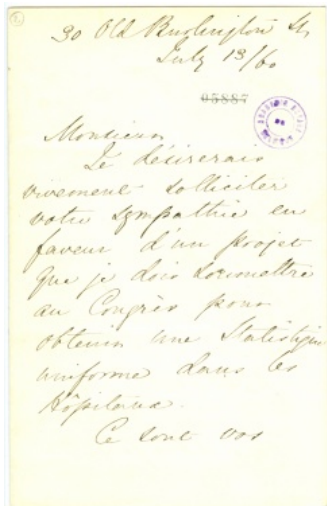 30 Old Burlington St
July 13/60
05887
Monsieur
Je désirerais
vivement solliciter
votre sympathie en
faveur d'un projet
que je dois soumettre
au Congrès pour
obtenir une Statistique
uniforme dans les
Hôpitaux.
Ce sont vos